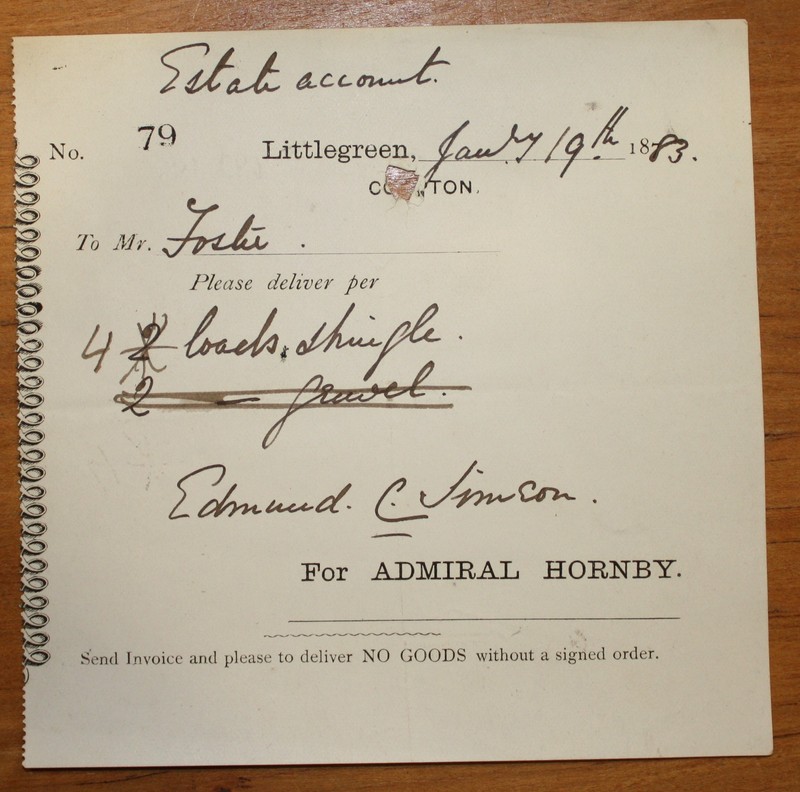 Estate account.
No. 79 Littlegreen, Jany 19th 1883.
TON.
To Mr. Foster .
Please deliver per
4 2 loads shingle.
2 — gravel.
Edmund. C. Simson.
For ADMIRAL HORNBY.
Send Invoice and please to deliver NO GOODS without a signed order.